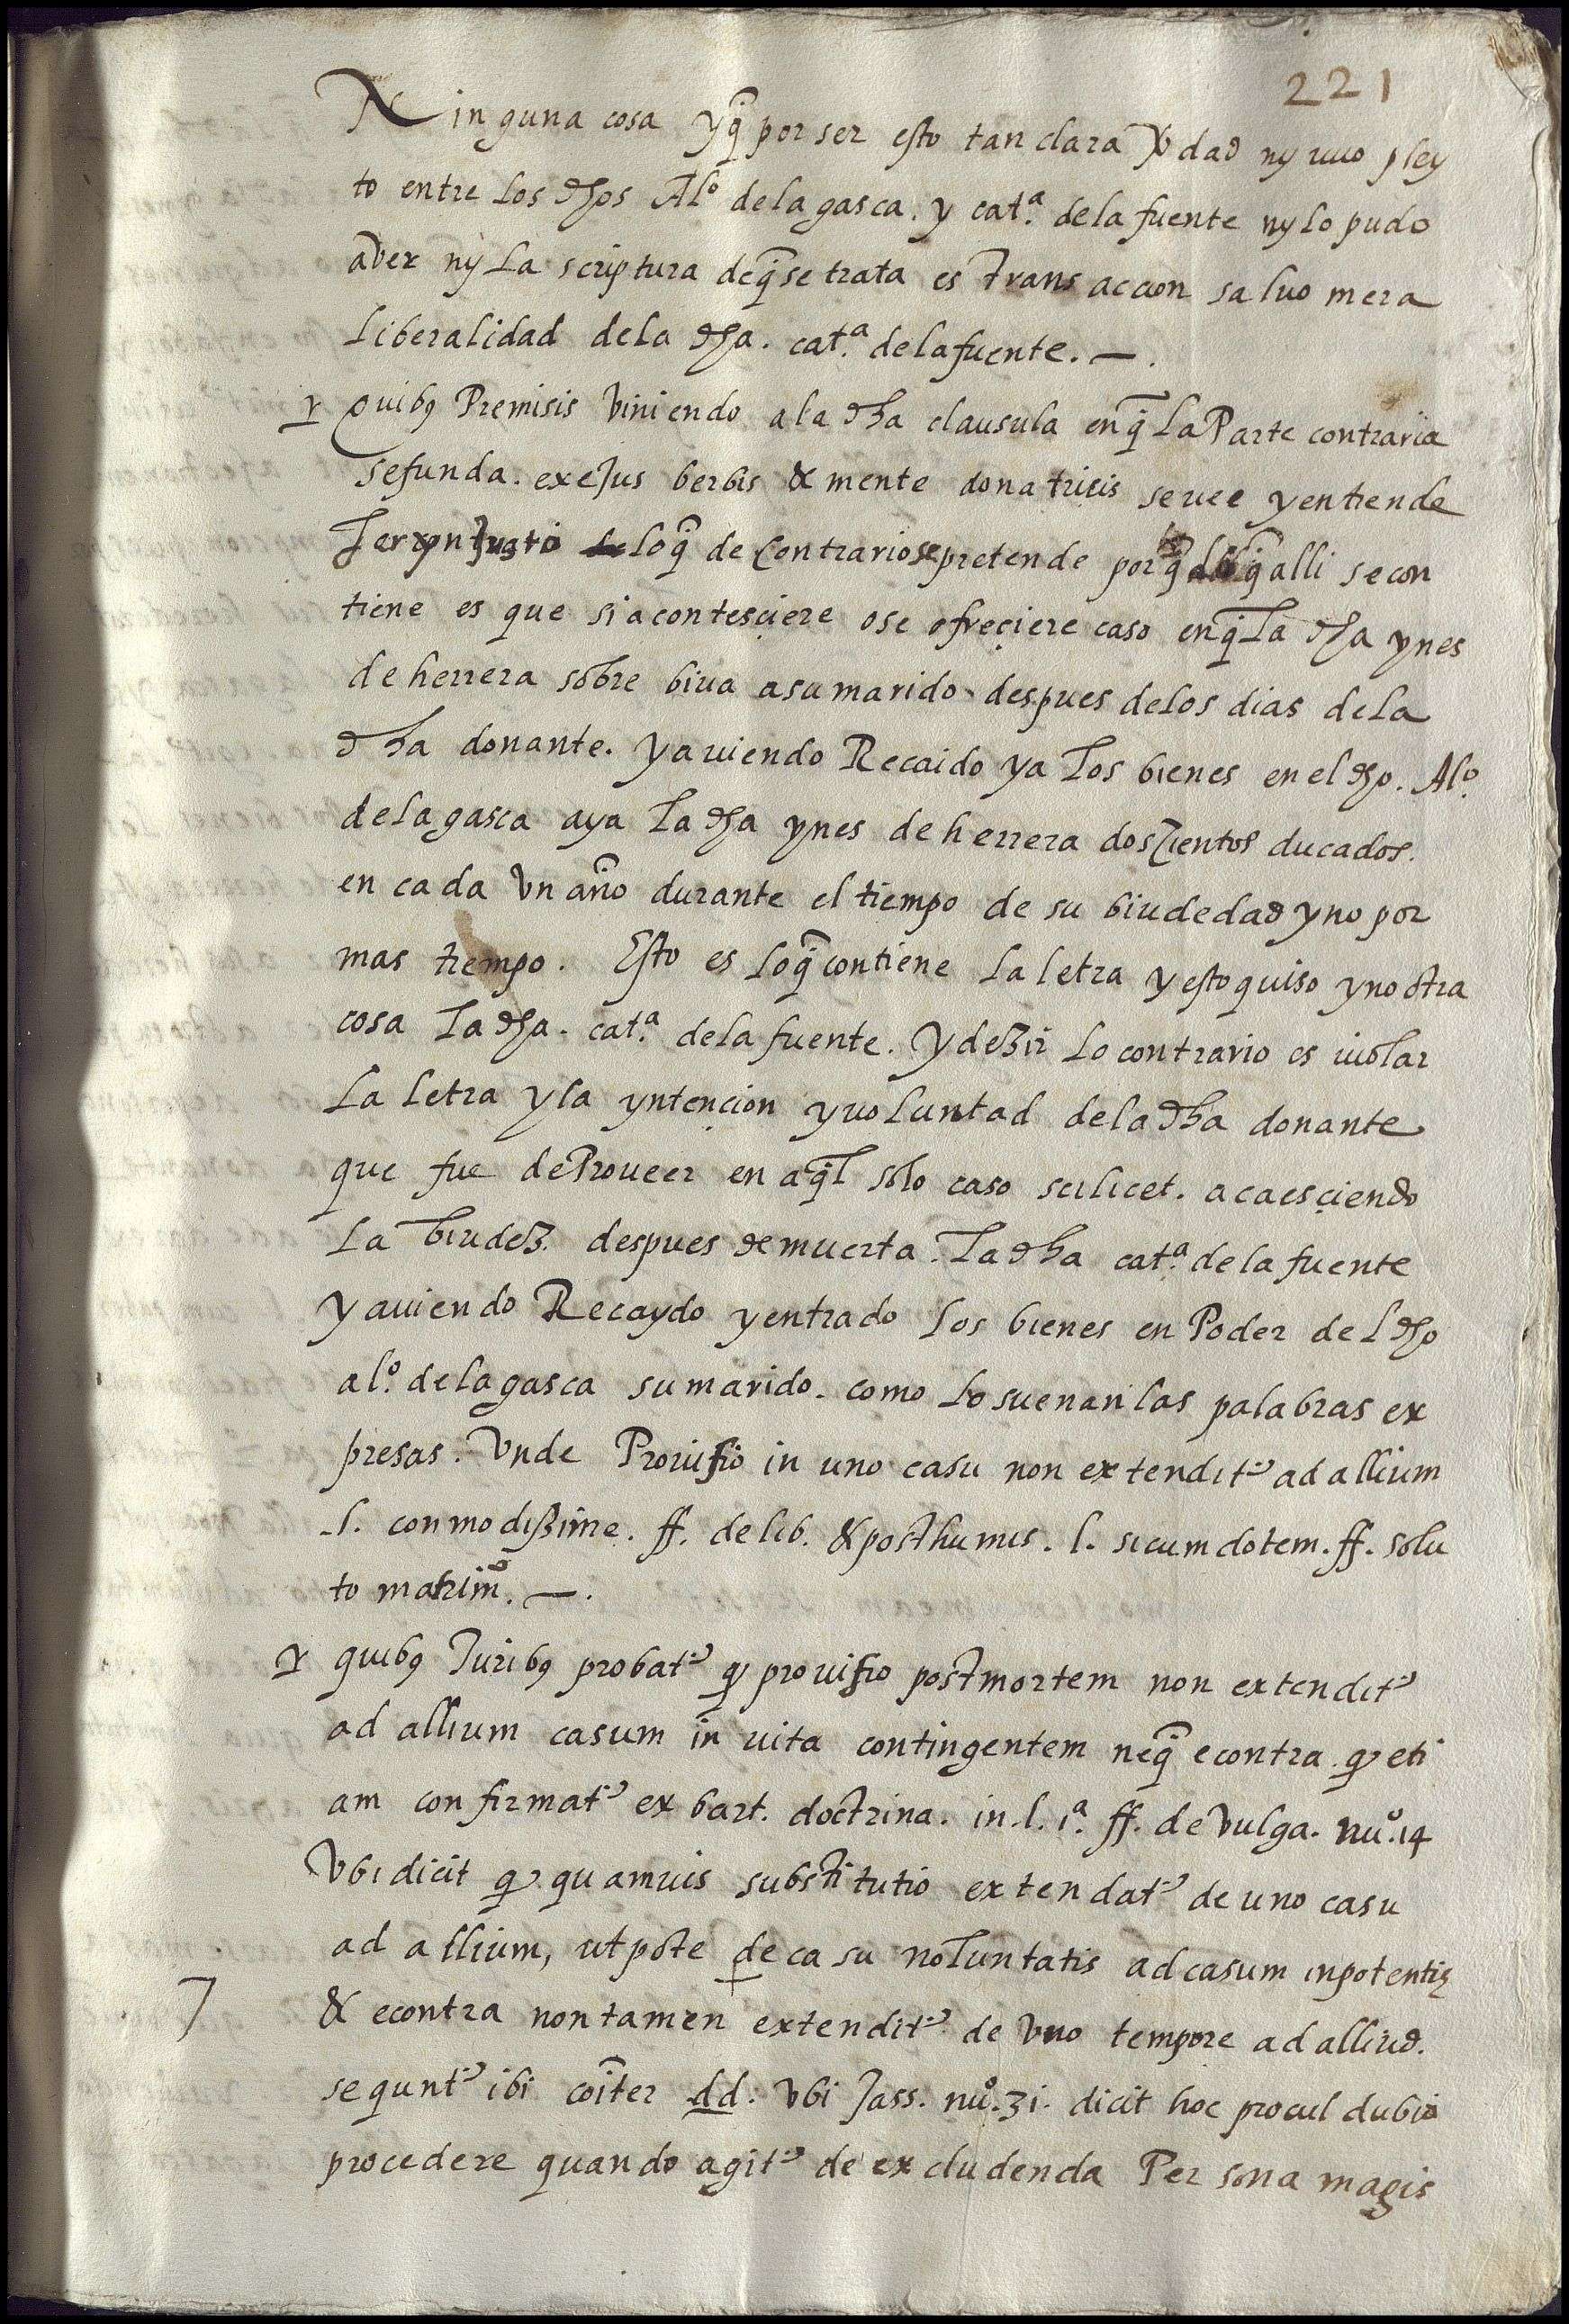 221
Ninguna cosa y q̃ por ser esto tan clara v̄dad ny uuo pley
to entre los dhos Al.º de la gasca. y cat.ª de la fuente ny lo pudo
aver ny La scriptura de q̃ se trata es transaccion saluo mera
Liberalidad de la dha. cat.ª de la fuente. —.
quibꝰ Premisis viniendo a la dha clausula en q̃ La Parte contraria
se funda. ex ejus berbis & mente donatricis se uee y entiende
ser ynjusto lo q̃ de contrario se pretende por q̃ q̃ alli se con
tiene es que si acontesçiere o se ofreçiere caso en q̃ La dha ynes
de herrera sobre biua a su marido despues de los dias de la
dha donante. y auiendo Recaido ya los bienes en el dho. Al.º
de la gasca aya La dha ynes de herrera dosçientos ducados.
en cada vn año durante el tiempo de su biudedad y no por
mas tiempo. Esto es lo q̃ contiene la letra y esto quiso y no otra
cosa La dha. cat.ª de la fuente. y dezir lo contrario es uiolar
La Letra y la yntençion y uoluntad de la dha donante
que fue de Proueer en aq̃l solo caso scilicet. acaesçiendo
La biudez. despues de muerta. La dha cat.ª de la fuente
y auiendo Recaydo y entrado los bienes en Poder del dho
al.º de la gasca su marido. como lo suenan las palabras ex
presas. Vnde Prouisio in uno casu non extendit᷑ ad allium
.l. conmodissime. ff. de lib. & posthumis. l. si cum dotem. ff. solu
to matrimº. —.
quibꝰ Juribꝰ probat᷑ ꝙ prouisio post mortem non extendit᷑
ad allium casum in uita contingentem neq̃ econtra. ꝙ eti
am confirmat᷑ ex bart. doctrina. in .l. 1.ª ff. de Vulga. nu.º 14
Vbi dicit ꝙ quamuis substitutio extendat᷑ de uno casu
ad allium, ut pote de casu noluntatis ad casum inpotentię
& econtra non tamen extendit᷑ de vno tempore ad alliud.
sequnt᷑ ibi coīter dd. Vbi Jass. nu.º 31. dicit hoc procul dubio
procedere quando agit᷑ de excludenda Persona magis